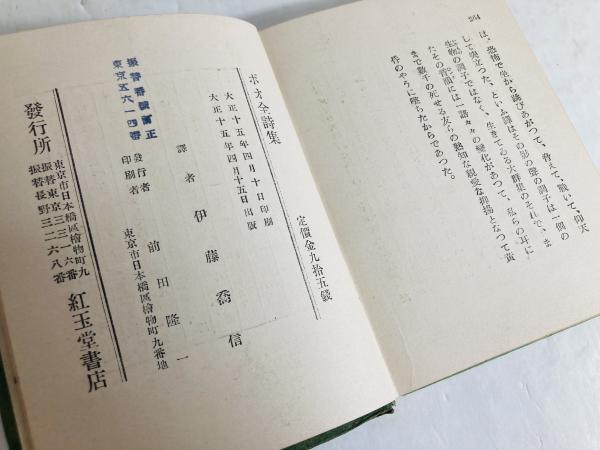 264
は、恐怖で坐から跳びあがつて、脅えて、戰いて、仰天
して突立つた。といふ譯はその影の聲の調子は一個の
生物の調子ではない、生きてゐる大群集のそれで、ま
たその音價には一語々々の變化があつて、私らの耳に
まで數千の死せる友らの熟知な親愛な抑揚となつて黄
昏のやうに墜ちたからであつた。
定價金九拾五錢
ポオ全詩集
大正十五年四月十日印刷
大正十五年四月十五日出版
譯者 伊藤喬信
發行者
印刷者 前田隆一
東京市日本橋區檜物町九番地
振替番號訂正
東京五六一四番
發行所
東京市日本橋區檜物町九
振替東京三三一六番
振替長野三二六八番
紅玉堂書店